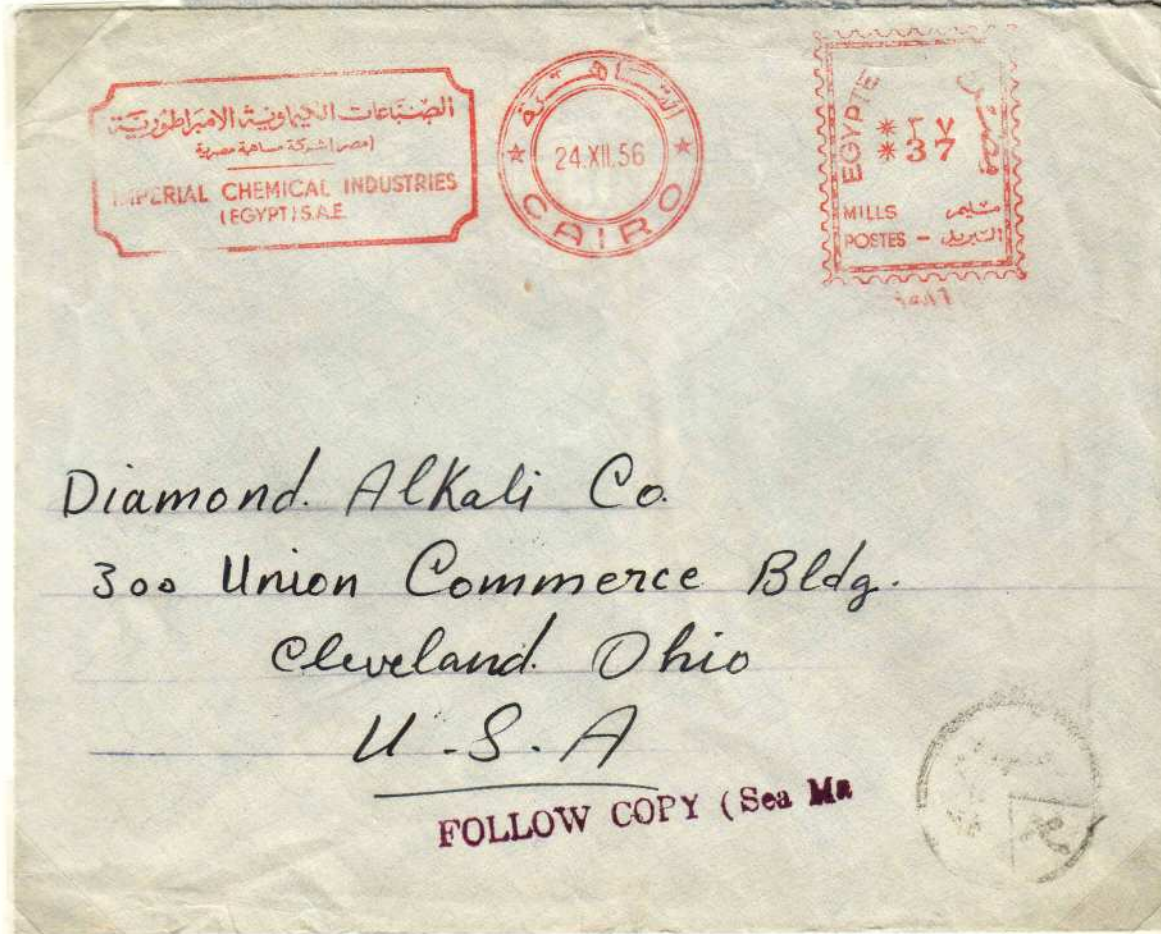 الصناعات الكيماوية الامبراطورية
(مصر) شركة مساهمة مصرية
IMPERIAL CHEMICAL INDUSTRIES
(EGYPT) S.A.E.
القاهرة
24.XII.56
CAIRO
EGYPTE
مصر
* ٣٧
* 37
MILLS مليم
POSTES - البريد
Diamond. Alkali Co.
300 Union Commerce Bldg.
Cleveland. Ohio
U.S.A
FOLLOW COPY (Sea Ma